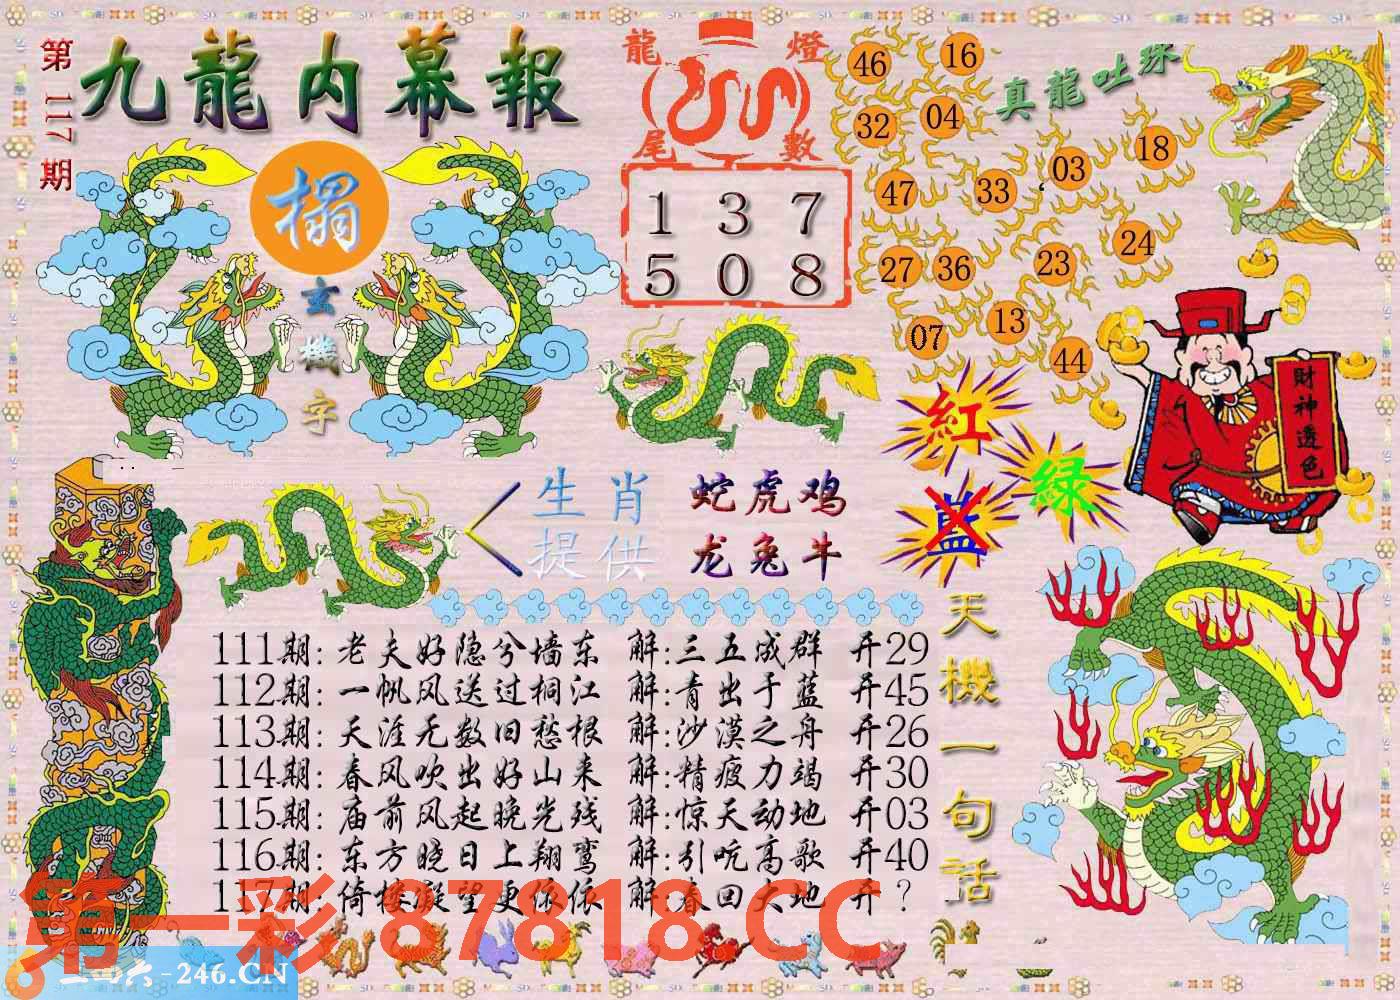 第117期
九龍内幕報
搨
玄機字
龍燈尾數
1 3 7
5 0 8
真龍吐珠
46 16
32 04
03 18
47 33
24
27 36 23
07 13
44
財神透色
紅
绿
蓝
生肖 蛇虎鸡
提供 龙兔牛
天機一句话
111期: 老夫好隐兮墙东 解:三五成群 开29
112期: 一帆风送过桐江 解:青出于蓝 开45
113期: 天涯无数旧愁根 解:沙漠之舟 开26
114期: 春风吹出好山来 解:精疲力竭 开30
115期: 庙前风起晚光残 解:惊天动地 开03
116期: 东方晓日上翔鸾 解:引吭高歌 开40
117期: 倚楼凝望更依依 解:春回大地 开?
第一彩 87818.CC
二四六-246.CN